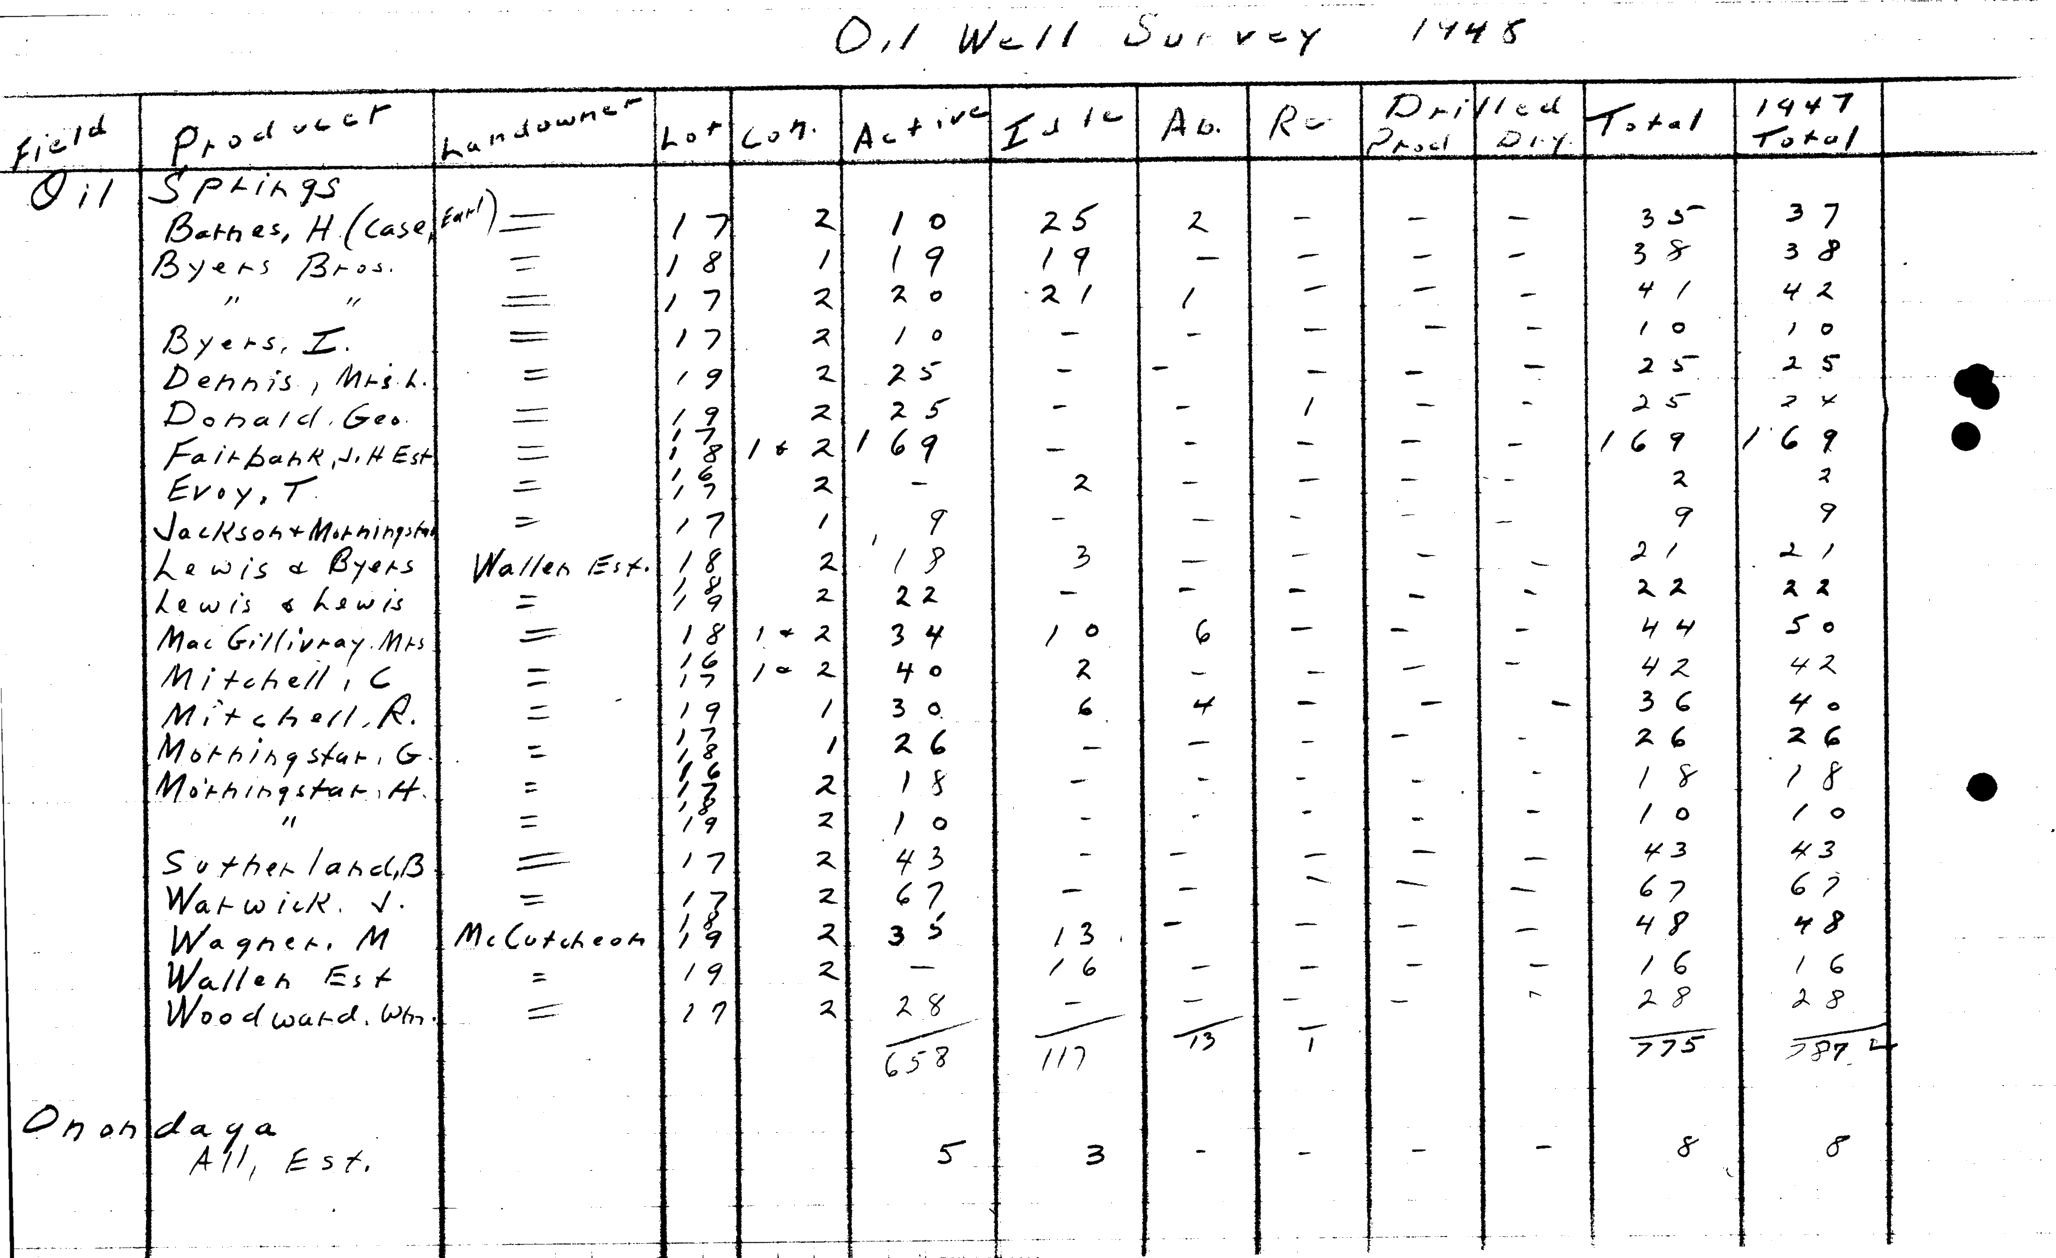 Oil Well Survey 1948
Field Producer Landowner Lot Con. Active Idle Ab. Re Drilled Prod Drilled Dry. Total 1947 Total
Oil Springs
Barnes, H. (Case, Earl) = 17 2 10 25 2 - - - 35 37
Byers Bros. = 18 1 19 19 - - - - 38 38
" " = 17 2 20 21 1 - - - 41 42
Byers, I. = 17 2 10 - - - - - 10 10
Dennis, Mrs. L. = 19 2 25 - - - - - 25 25
Donald, Geo. = 19 2 25 - - 1 - - 25 24
Fairbank, J. H Est = 17 18 1 & 2 169 - - - - - 169 169
Evoy, T. = 16 17 2 - 2 - - - - 2 2
Jackson & Morningstar = 17 1 9 - - - - - 9 9
Lewis & Byers Wallen Est. 18 2 18 3 - - - - 21 21
Lewis & Lewis = 18 19 2 22 - - - - - 22 22
MacGillivray, Mrs = 18 1 & 2 34 10 6 - - - 44 50
Mitchell, C = 16 17 1 & 2 40 2 - - - - 42 42
Mitchell, R. = 19 1 30 6 4 - - - 36 40
Morningstar, G. = 17 18 1 26 - - - - - 26 26
Morningstar, H. = 16 17 2 18 - - - - - 18 18
" = 18 19 2 10 - - - - - 10 10
Sutherland, B = 17 2 43 - - - - - 43 43
Warwick, J. = 17 2 67 - - - - - 67 67
Wagner, M McCutcheon 18 19 2 35 13 - - - - 48 48
Wallen Est = 19 2 - 16 - - - - 16 16
Woodward, Wm. = 17 2 28 - - - - - 28 28
658 117 13 1 775 787
Onondaga
All, Est. 5 3 - - - - 8 8